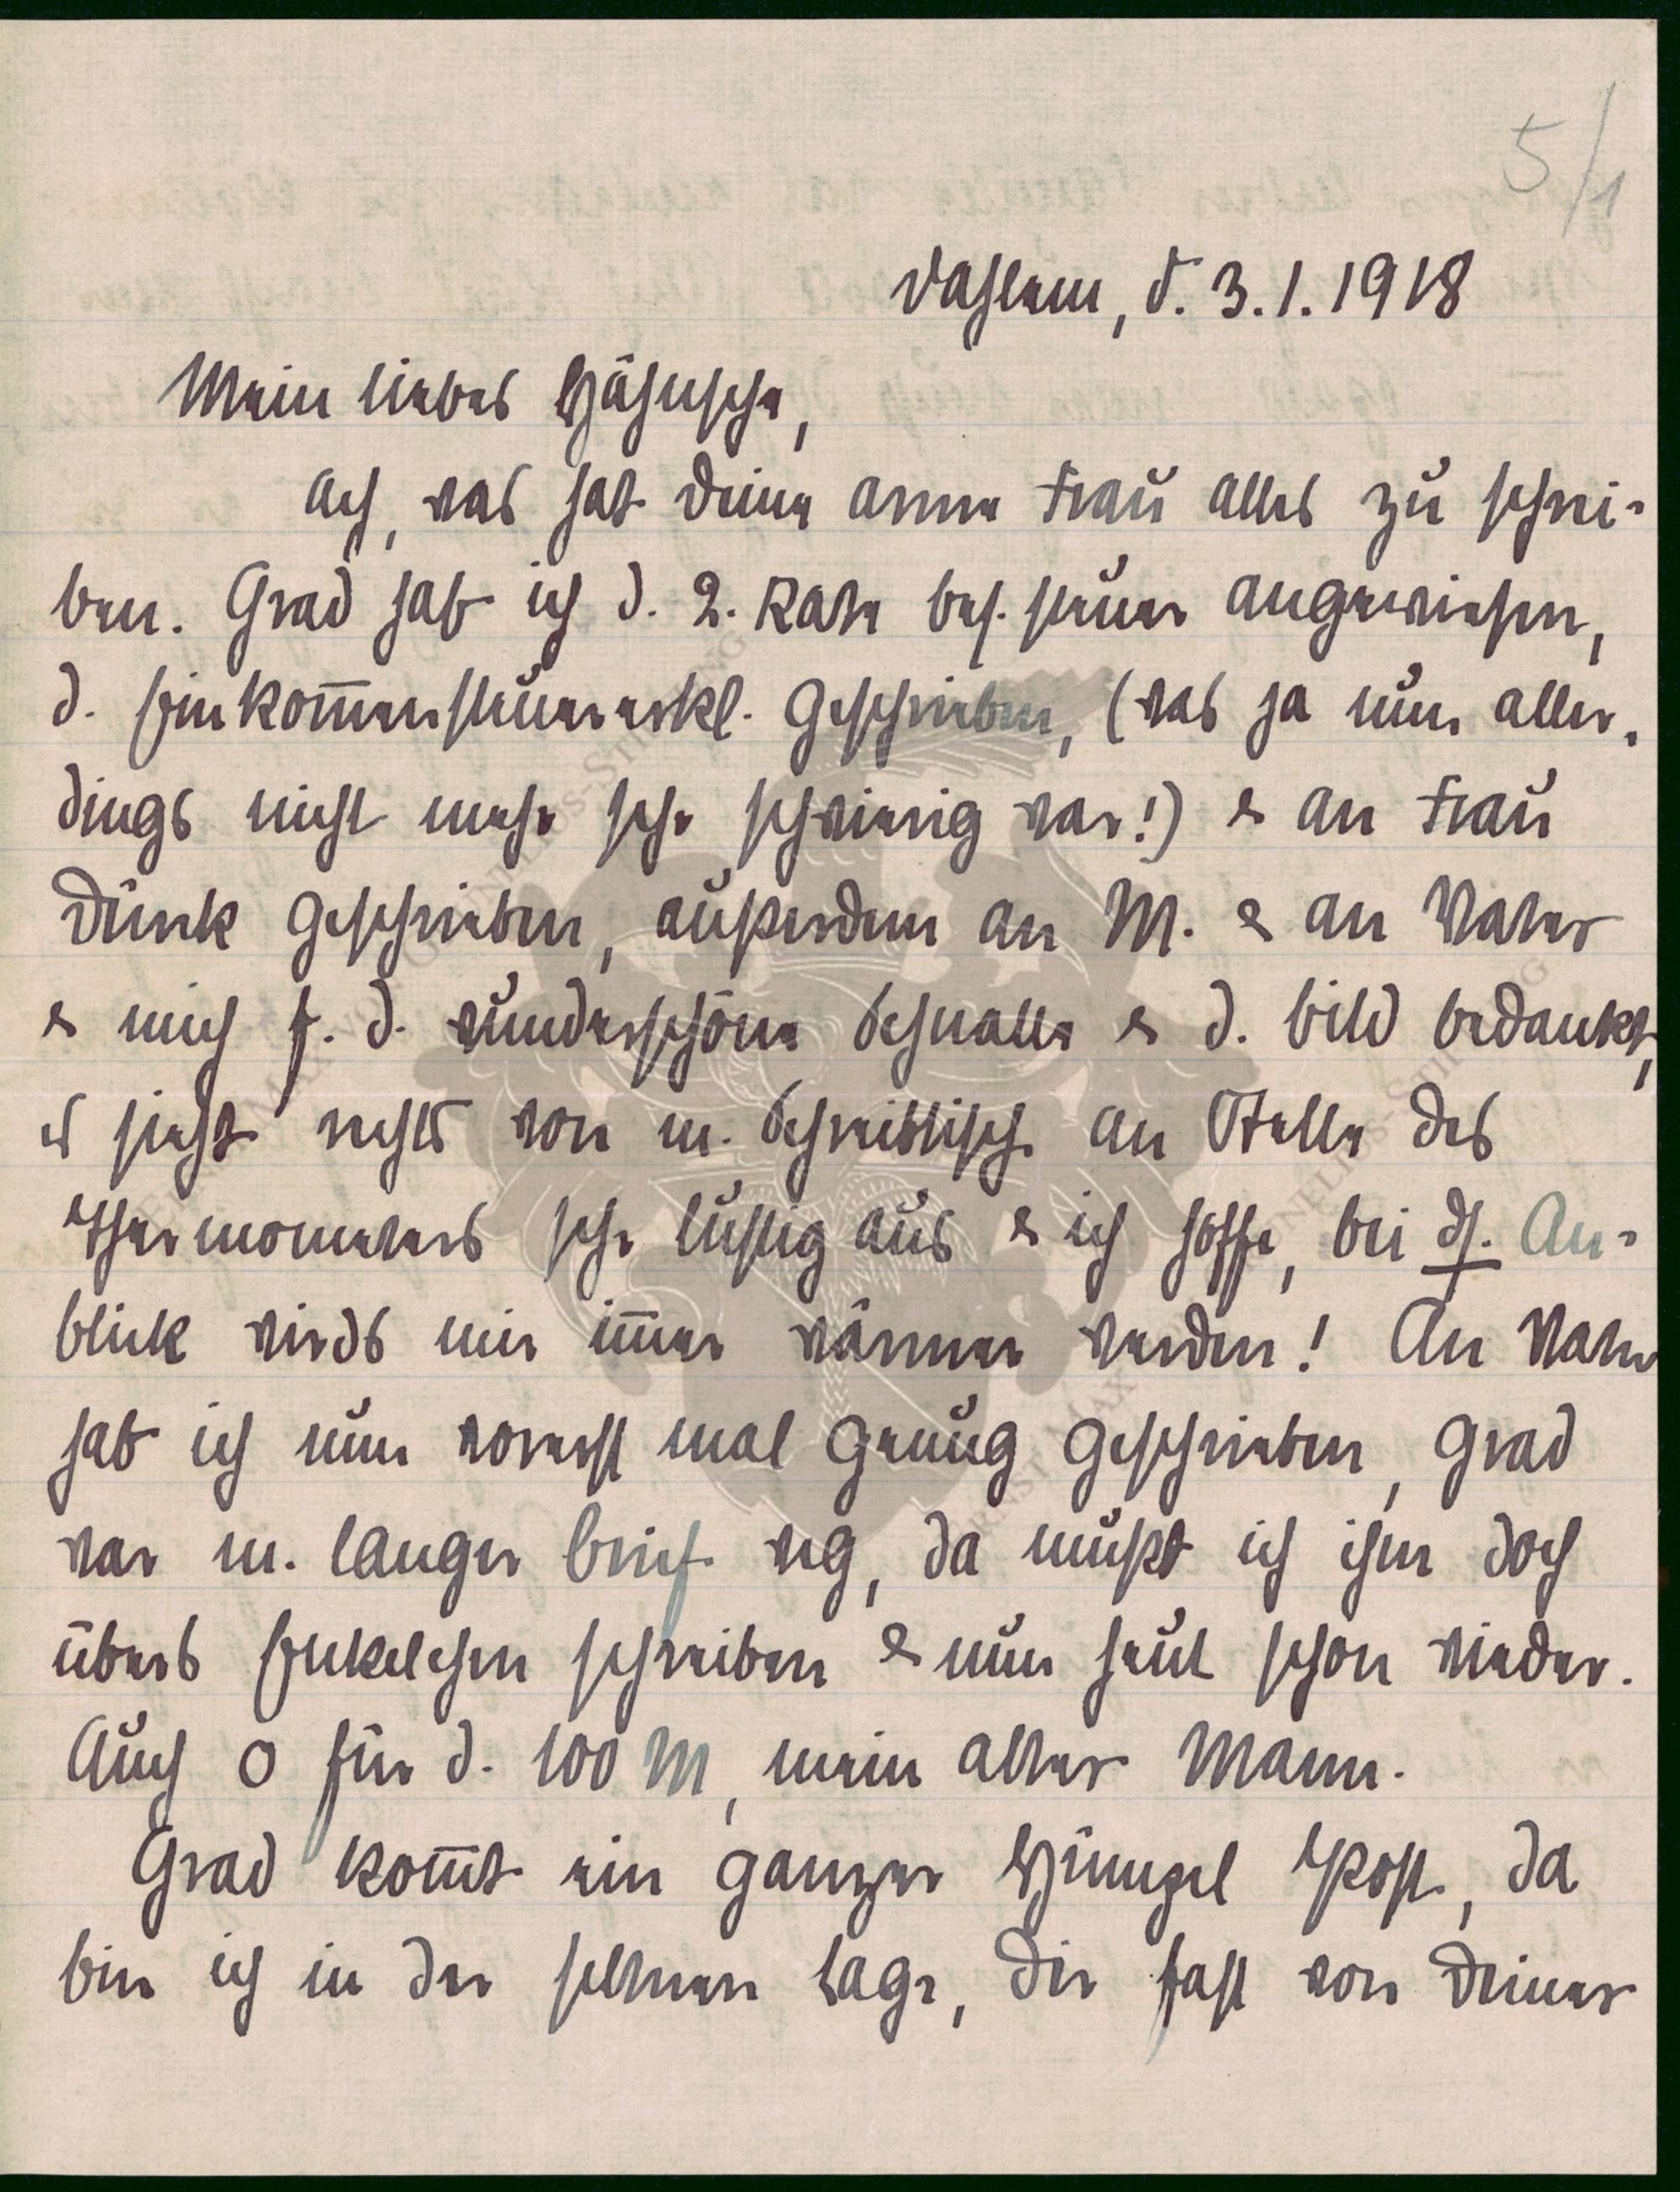 5/1
Dahlem, d. 3.1.1918
Mein liebes Hähnsche,
Ach, was hat Deine arme Frau alles zu schrei-
ben. Grad hab ich d. 2. Rate bes. steuer angewiesen,
d. Einkommensteuererkl. geschrieben, (was ja nun aller-
dings nicht mehr sehr schwierig war!) & an Frau
Dünk geschrieben, außerdem an M. & an Vater
& mich f. d. wunderschöne Schnalle & d. Bild bedankt,
es sieht rechts von m. Schreibtisch an Stelle des
Thermometers sehr lustig aus & ich hoffe, bei ds. An-
blick wirds mir immer wärmer werden! An Vater
hab ich nun vorerst mal genug geschrieben, grad
war m. langer Brief weg, da mußt ich ihm doch
übers Enkelchen schreiben & nun heut schon wieder.
Auch o für d. 100 M, mein alter Mann.
Grad kommt ein ganzer Hümpel Post, da
bin ich in der seltnen Lage, Dir fast von Deiner